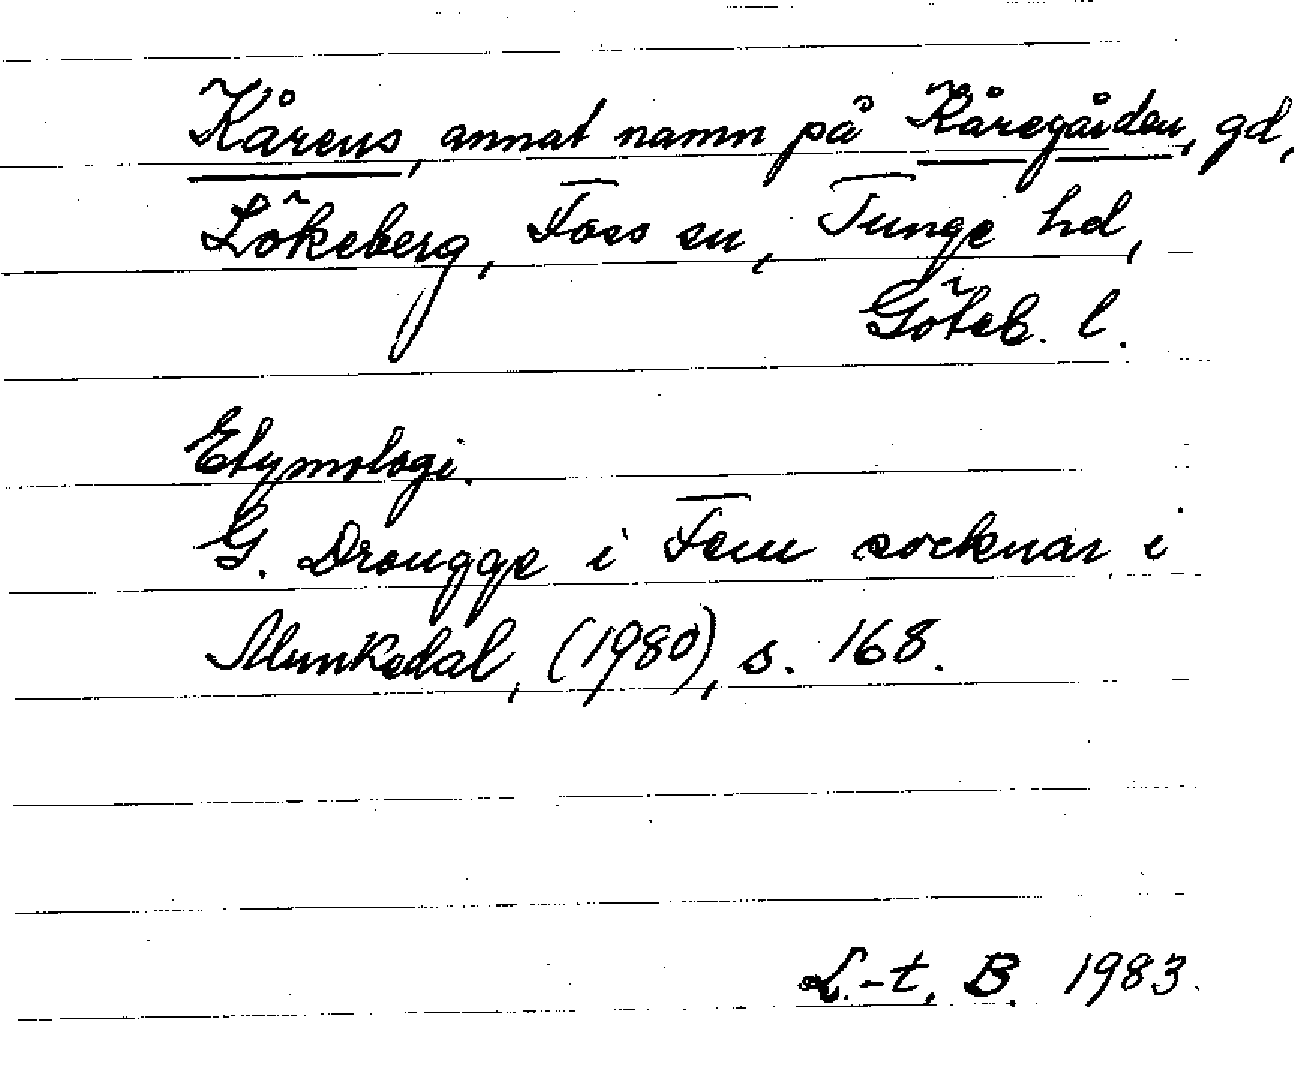 Kårens, annat namn på Kåregården, gd,
Lökeberg, Foss sn, Tunge hd,
Göteb. l.
Etymologi.
G. Drougge i Fem socknar i
Munkedal, (1980), s. 168.
L.-t. B. 1983.